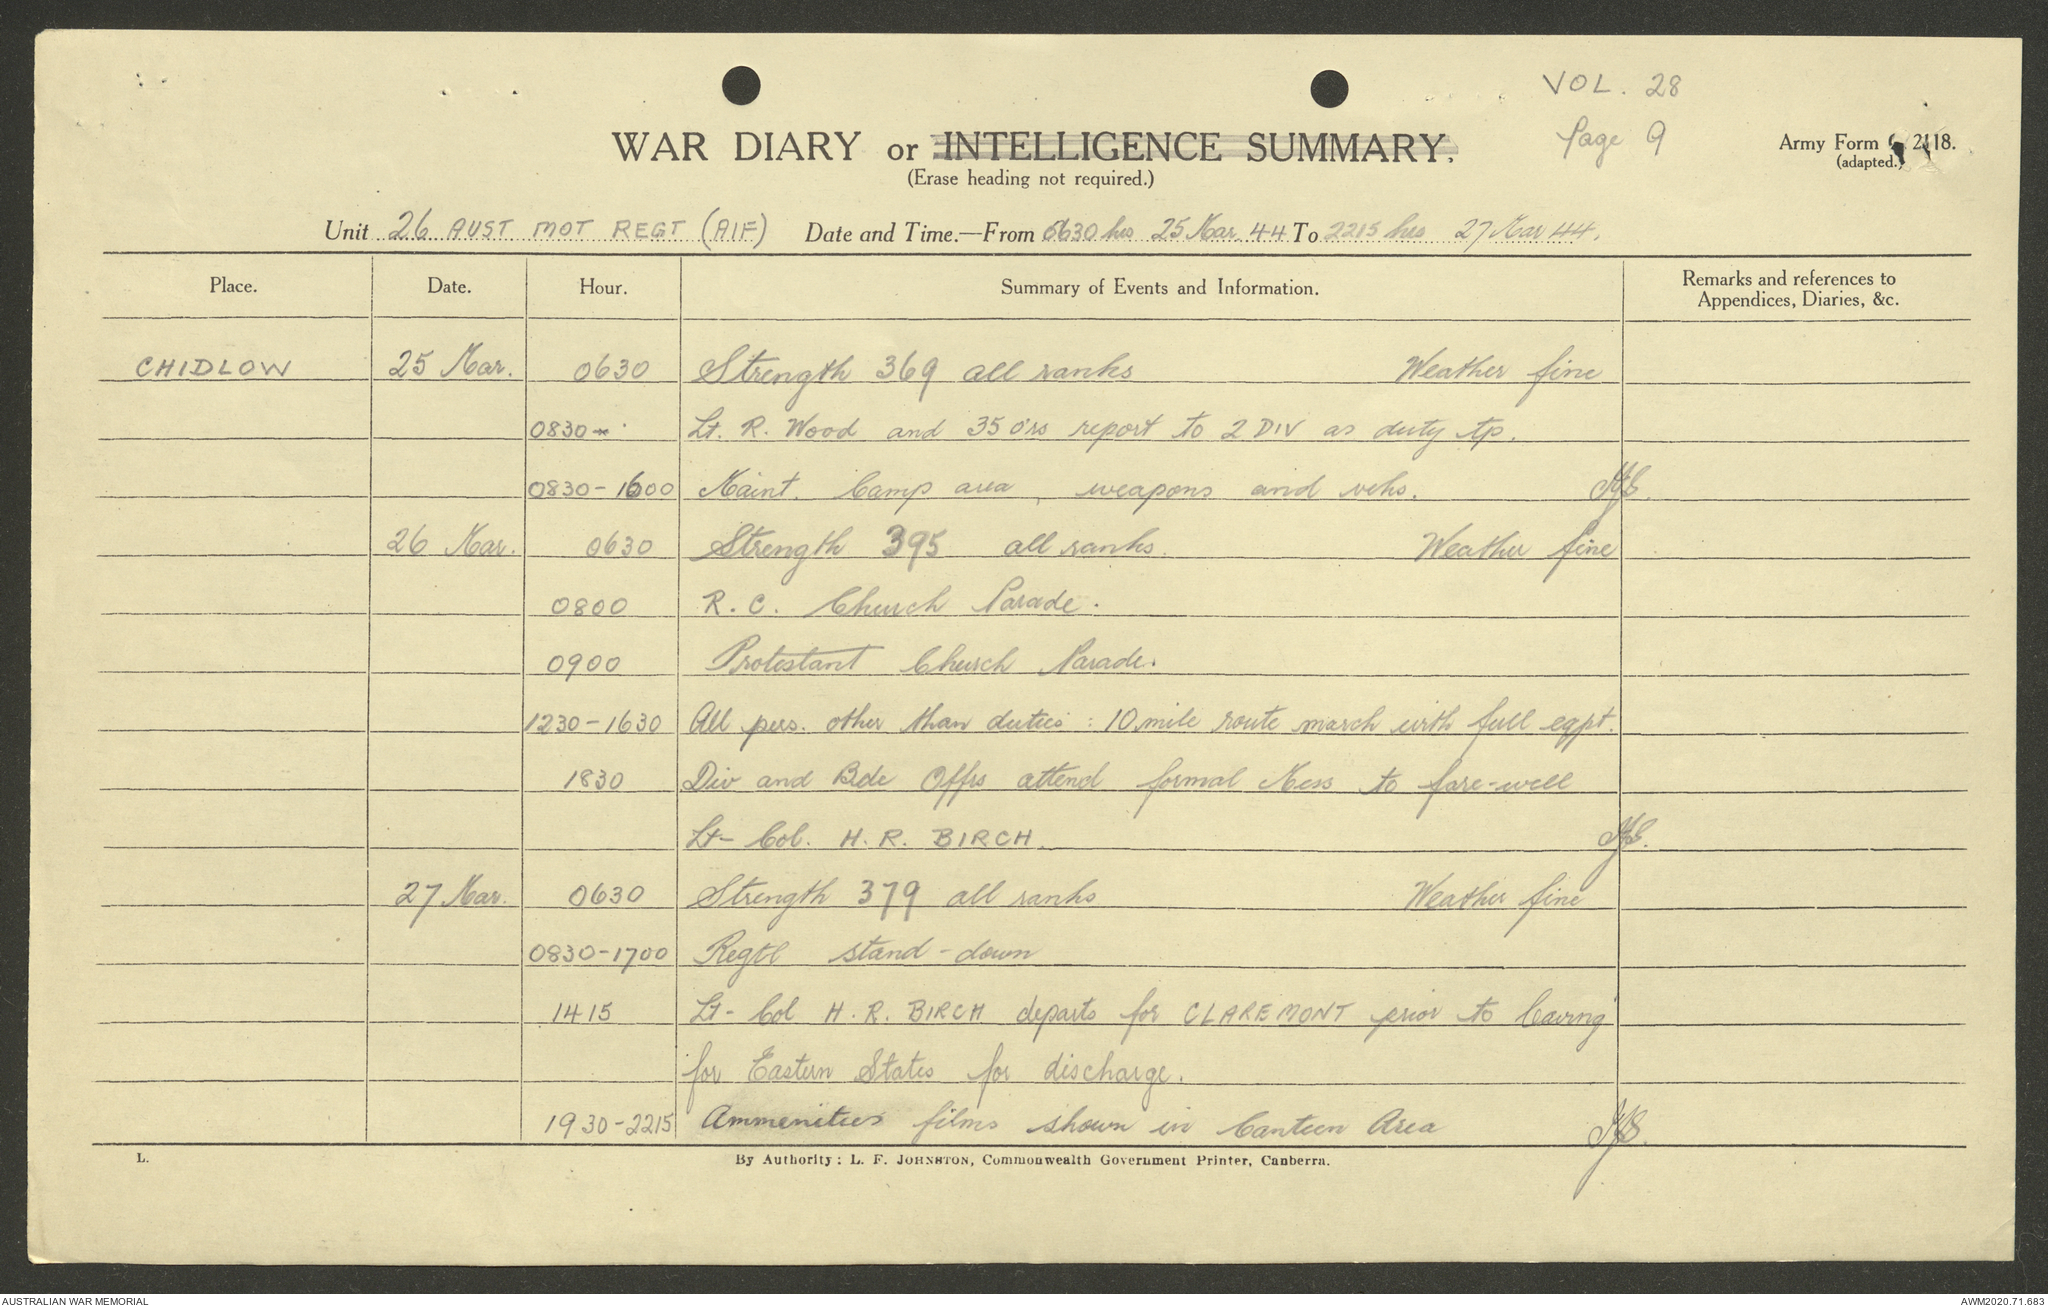 VOL. 28
Page 9
WAR DIARY or INTELLIGENCE SUMMARY.
(Erase heading not required.)
Army Form 2118.
(adapted.)
Unit 26 AUST MOT REGT (AIF) Date and Time.—From 0630 hrs 25 Mar. 44 To 2215 hrs 27 Mar 44.
Place. Date. Hour. Summary of Events and Information. Remarks and references to Appendices, Diaries, &c.
CHIDLOW 25 Mar. 0630 Strength 369 all ranks Weather fine
0830 Lt. R. Wood and 35 o'rs report to 2 DIV as duty tp.
0830-1600 Maint. Camp area, weapons and vehs.
26 Mar. 0630 Strength 395 all ranks. Weather fine
0800 R.C. Church Parade.
0900 Protestant Church Parade.
1230-1630 All pers. other than duties: 10 mile route march with full eqpt.
1830 Div and Bde Offrs attend formal Mess to fare-well
Lt-Col. H.R. BIRCH.
27 Mar. 0630 Strength 379 all ranks Weather fine
0830-1700 Regtl stand-down
1415 Lt-Col H.R. BIRCH departs for CLAREMONT prior to leaving
for Eastern States for discharge.
1930-2215 Ammenities films shown in Canteen Area
L. By Authority: L. F. JOHNSTON, Commonwealth Government Printer, Canberra.
AUSTRALIAN WAR MEMORIAL AWM2020.71.683